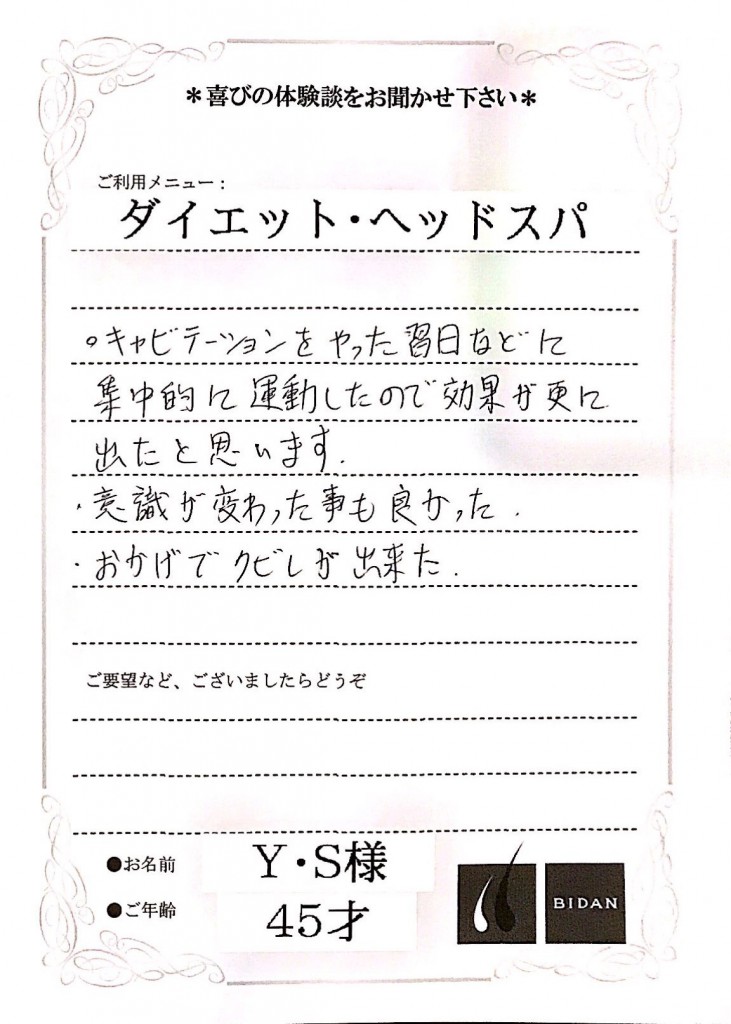 ＊喜びの体験談をお聞かせ下さい＊
ご利用メニュー：
ダイエット・ヘッドスパ
。キャビテーションをやった習日などに
集中的に運動したので効果が更に
出たと思います.
・意識が変わった事も良かった.
・おかげでクビレが出来た.
ご要望など、ございましたらどうぞ
●お名前 Y・S様
●ご年齢 45才
BIDAN